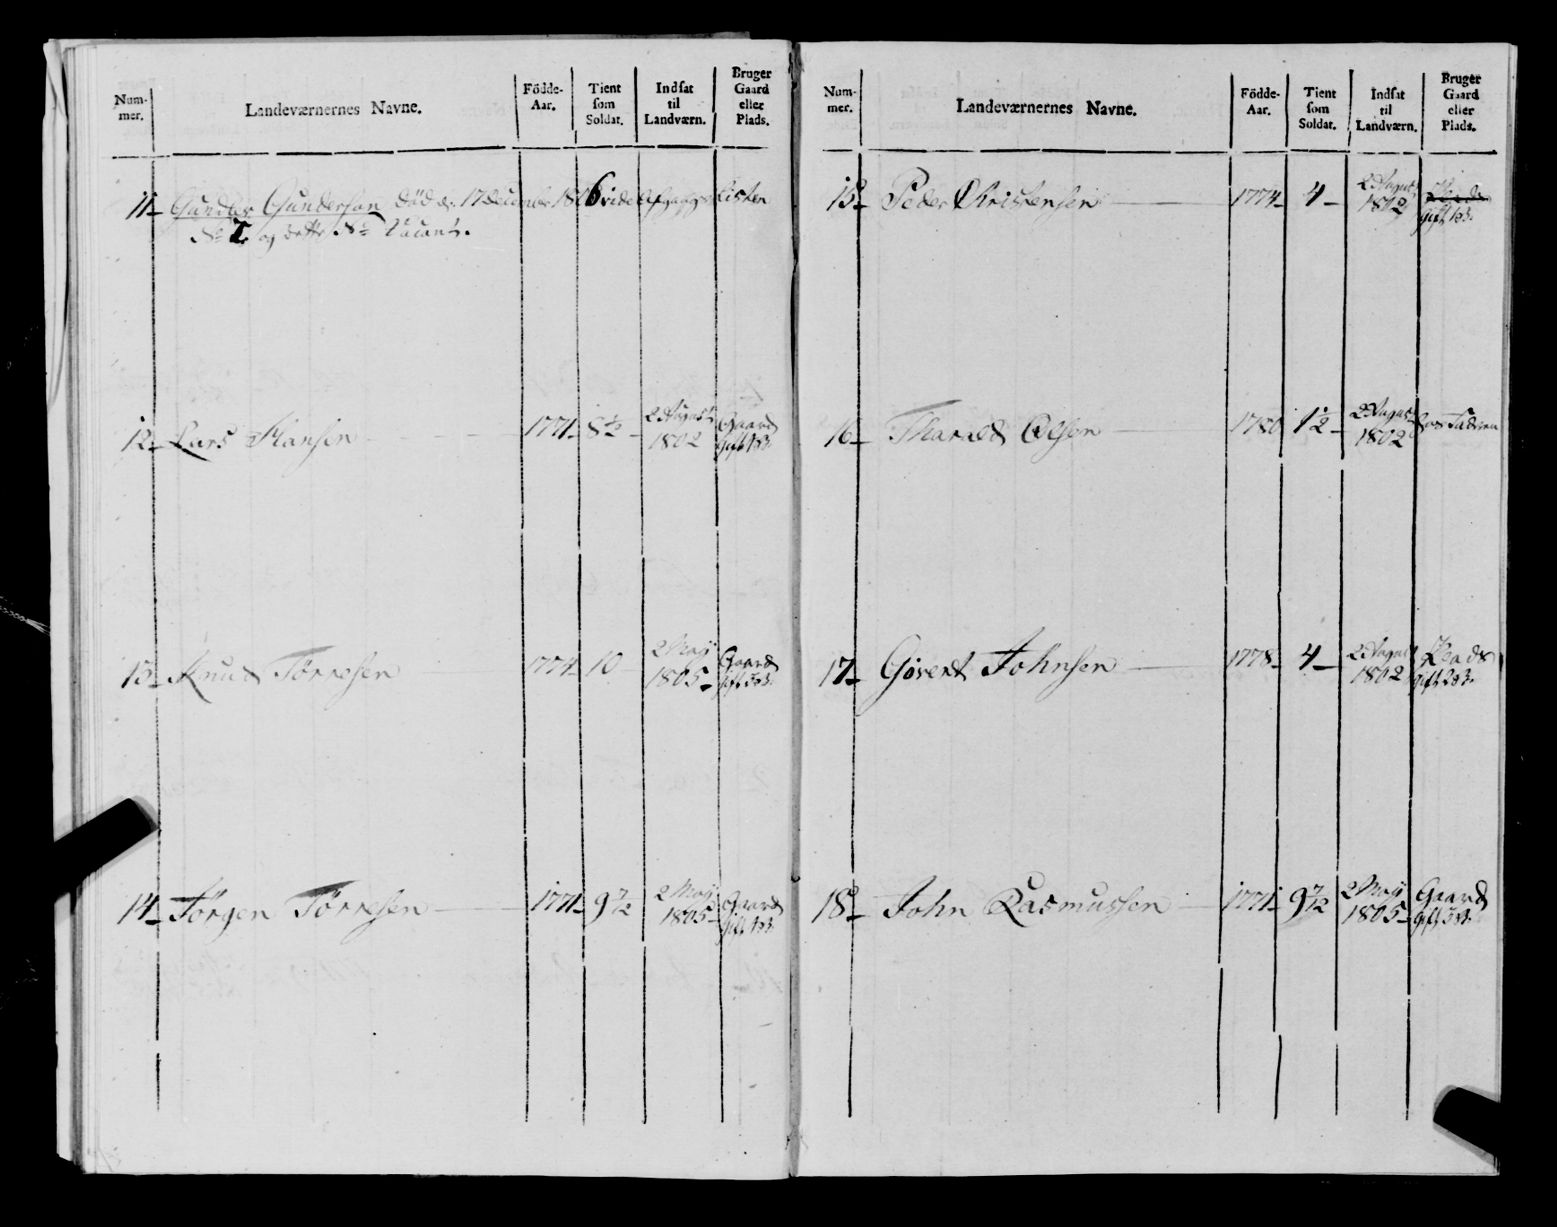 Num-
mer.
Landeværnernes Navne.
Födde-
Aar.
Tient
som
Soldat.
Indsat
til
Landværn.
Bruger
Gaard
eller
Plads.
11 Gunder Gundersen död d. 17 December 1806 vide Afgangs Listen
No 1 og dette No Vacant.
12 Lars Hansen 1771 8½ 2 August 1802 Gaard
gift 1 B.
13 Knud Törresen 1774 10 2 May 1805 Gaard
gift 3 B.
14 Jörgen Törresen 1771 9 7/12 2 May 1805 Gaard
gift 1 B.
Num-
mer.
Landeværnernes Navne.
Födde-
Aar.
Tient
som
Soldat.
Indsat
til
Landværn.
Bruger
Gaard
eller
Plads.
15 Peder Christensen 1774 4 2 August 1802
gift 1 B.
16 Tharald Olsen 1780 1½ 2 August 1802 hos Faderen
17 Givert Johnsen 1778 4 2 August 1802 Plads
gift 2 B.
18 John Rasmussen 1771 9 7/12 2 May 1805 Gaard
gift 3 B.